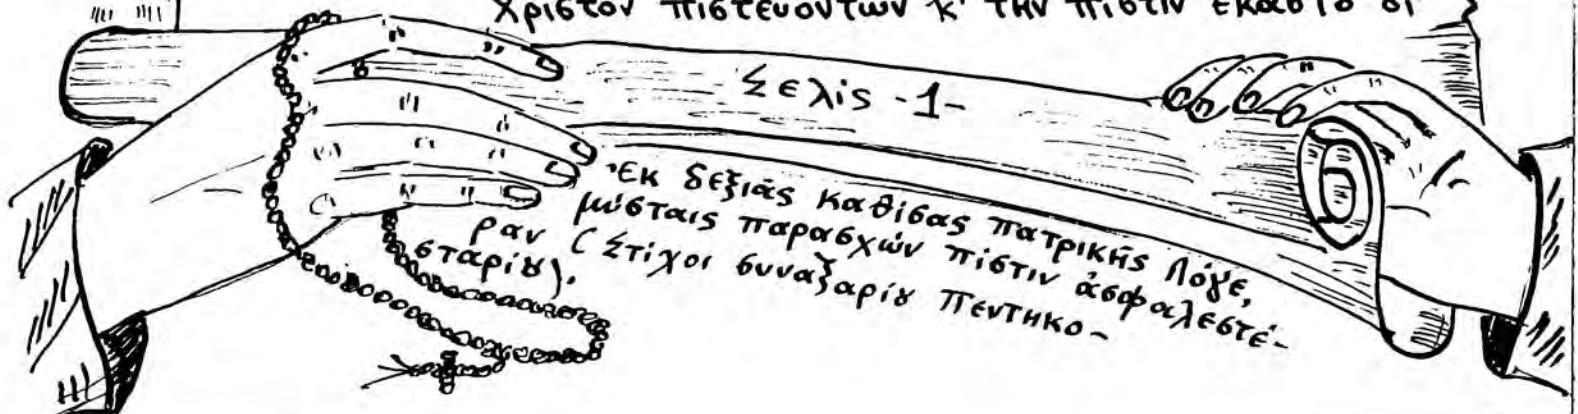 Χριστὸν πιστευόντων κ' τὴν πίστιν ἑκάστȣ δι
Σελὶς -1-
Ἐκ δεξιᾶς καθίσας πατρικῆς Λόγε,
μύσταις παρασχὼν πίστιν ἀσφαλεστέ-
ραν (Στίχοι συναξαρίȣ Πεντηκο-
σταρίȣ).